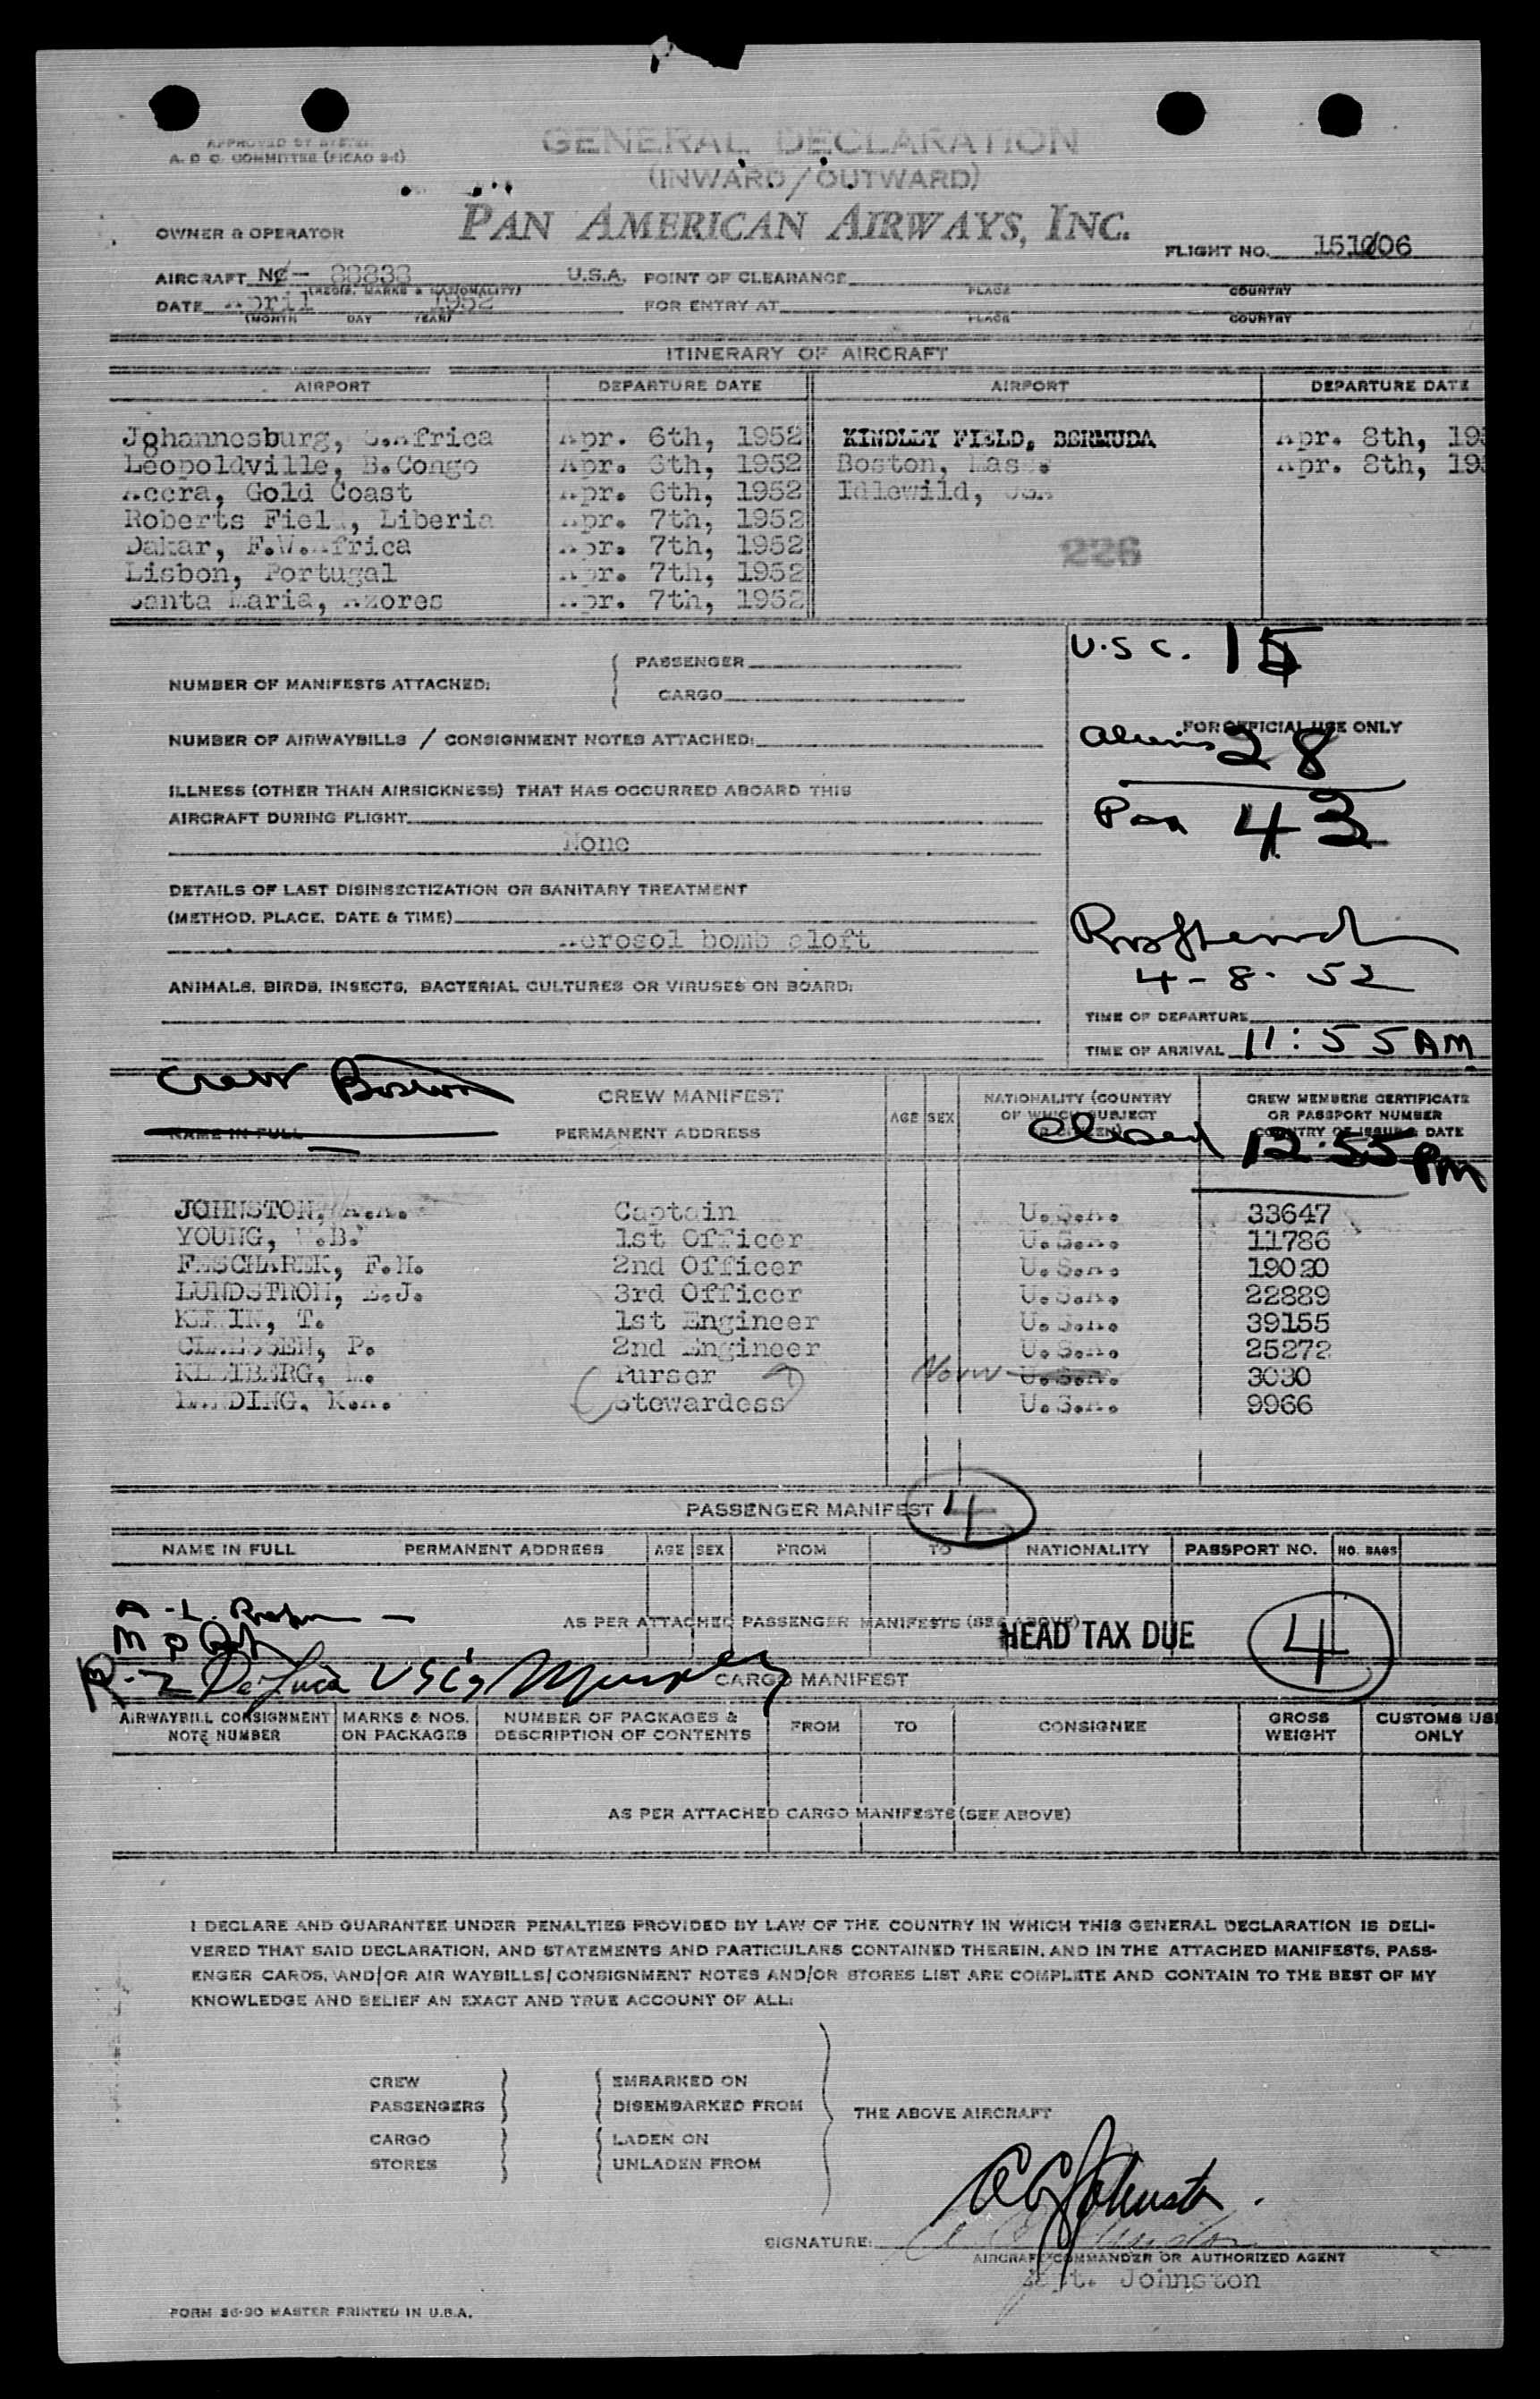 APPROVED BY
A. D. C. COMMITTEE (FICAO 2-1)
GENERAL DECLARATION
(INWARD/OUTWARD)
OWNER & OPERATOR PAN AMERICAN AIRWAYS, INC.
FLIGHT NO. 151/06
AIRCRAFT NC- 88838 U.S.A. POINT OF CLEARANCE
(REGIS. MARKS & NATIONALITY) PLACE COUNTRY
DATE April 1952 FOR ENTRY AT
(MONTH DAY YEAR) PLACE COUNTRY
ITINERARY OF AIRCRAFT
AIRPORT DEPARTURE DATE AIRPORT DEPARTURE DATE
Johannesburg, S.Africa Apr. 6th, 1952 KINDLEY FIELD, BERMUDA Apr. 8th, 19
Leopoldville, B.Congo Apr. 6th, 1952 Boston, Mass. Apr. 8th, 19
Accra, Gold Coast Apr. 6th, 1952 Idlewild, USA
Roberts Field, Liberia Apr. 7th, 1952
Dakar, F.W.Africa Apr. 7th, 1952 226
Lisbon, Portugal Apr. 7th, 1952
Santa Maria, Azores Apr. 7th, 1952
U.S C. 15
PASSENGER
NUMBER OF MANIFESTS ATTACHED:
CARGO
FOR OFFICIAL USE ONLY
NUMBER OF AIRWAYBILLS / CONSIGNMENT NOTES ATTACHED:
Aliens 28
ILLNESS (OTHER THAN AIRSICKNESS) THAT HAS OCCURRED ABOARD THIS
AIRCRAFT DURING FLIGHT
Pax 43
None
DETAILS OF LAST DISINSECTIZATION OR SANITARY TREATMENT
(METHOD, PLACE, DATE & TIME)
Aerosol bomb aloft
4-8-52
ANIMALS, BIRDS, INSECTS, BACTERIAL CULTURES OR VIRUSES ON BOARD:
TIME OF DEPARTURE
TIME OF ARRIVAL 11:55 AM
Crew Boston
CREW MANIFEST
NAME IN FULL PERMANENT ADDRESS AGE SEX NATIONALITY (COUNTRY OF WHICH SUBJECT OR CITIZEN) CREW MEMBERS CERTIFICATE OR PASSPORT NUMBER COUNTRY OF ISSUE & DATE
Cleared 12:55 PM
JOHNSTON, A.A. Captain U.S.A. 33647
YOUNG, .B. 1st Officer U.S.A. 11786
PESCHAREK, F.H. 2nd Officer U.S.A. 19020
LUNDSTROM, E.J. 3rd Officer U.S.A. 22889
KLEIN, T. 1st Engineer U.S.A. 39155
CLAESSEN, P. 2nd Engineer U.S.A. 25272
KLEIBERG, Purser Norw U.S.A. 3030
LANDING, K.A. Stewardess U.S.A. 9966
PASSENGER MANIFEST 4
NAME IN FULL PERMANENT ADDRESS AGE SEX FROM TO NATIONALITY PASSPORT NO. NO. BAGS
A - L.
AS PER ATTACHED PASSENGER MANIFESTS (SEE ABOVE)
HEAD TAX DUE 4
M P
R-Z De Luca USIS Murphy
CARGO MANIFEST
AIRWAYBILL CONSIGNMENT NOTE NUMBER MARKS & NOS. ON PACKAGES NUMBER OF PACKAGES & DESCRIPTION OF CONTENTS FROM TO CONSIGNEE GROSS WEIGHT CUSTOMS USE ONLY
AS PER ATTACHED CARGO MANIFESTS (SEE ABOVE)
I DECLARE AND GUARANTEE UNDER PENALTIES PROVIDED BY LAW OF THE COUNTRY IN WHICH THIS GENERAL DECLARATION IS DELI-
VERED THAT SAID DECLARATION, AND STATEMENTS AND PARTICULARS CONTAINED THEREIN, AND IN THE ATTACHED MANIFESTS, PASS-
ENGER CARDS, AND/OR AIR WAYBILLS/CONSIGNMENT NOTES AND/OR STORES LIST ARE COMPLETE AND CONTAIN TO THE BEST OF MY
KNOWLEDGE AND BELIEF AN EXACT AND TRUE ACCOUNT OF ALL:
CREW EMBARKED ON
PASSENGERS DISEMBARKED FROM
THE ABOVE AIRCRAFT
CARGO LADEN ON
STORES UNLADEN FROM
SIGNATURE: Johnston
AIRCRAFT COMMANDER OR AUTHORIZED AGENT
Capt. Johnston
FORM 36-90 MASTER PRINTED IN U.S.A.